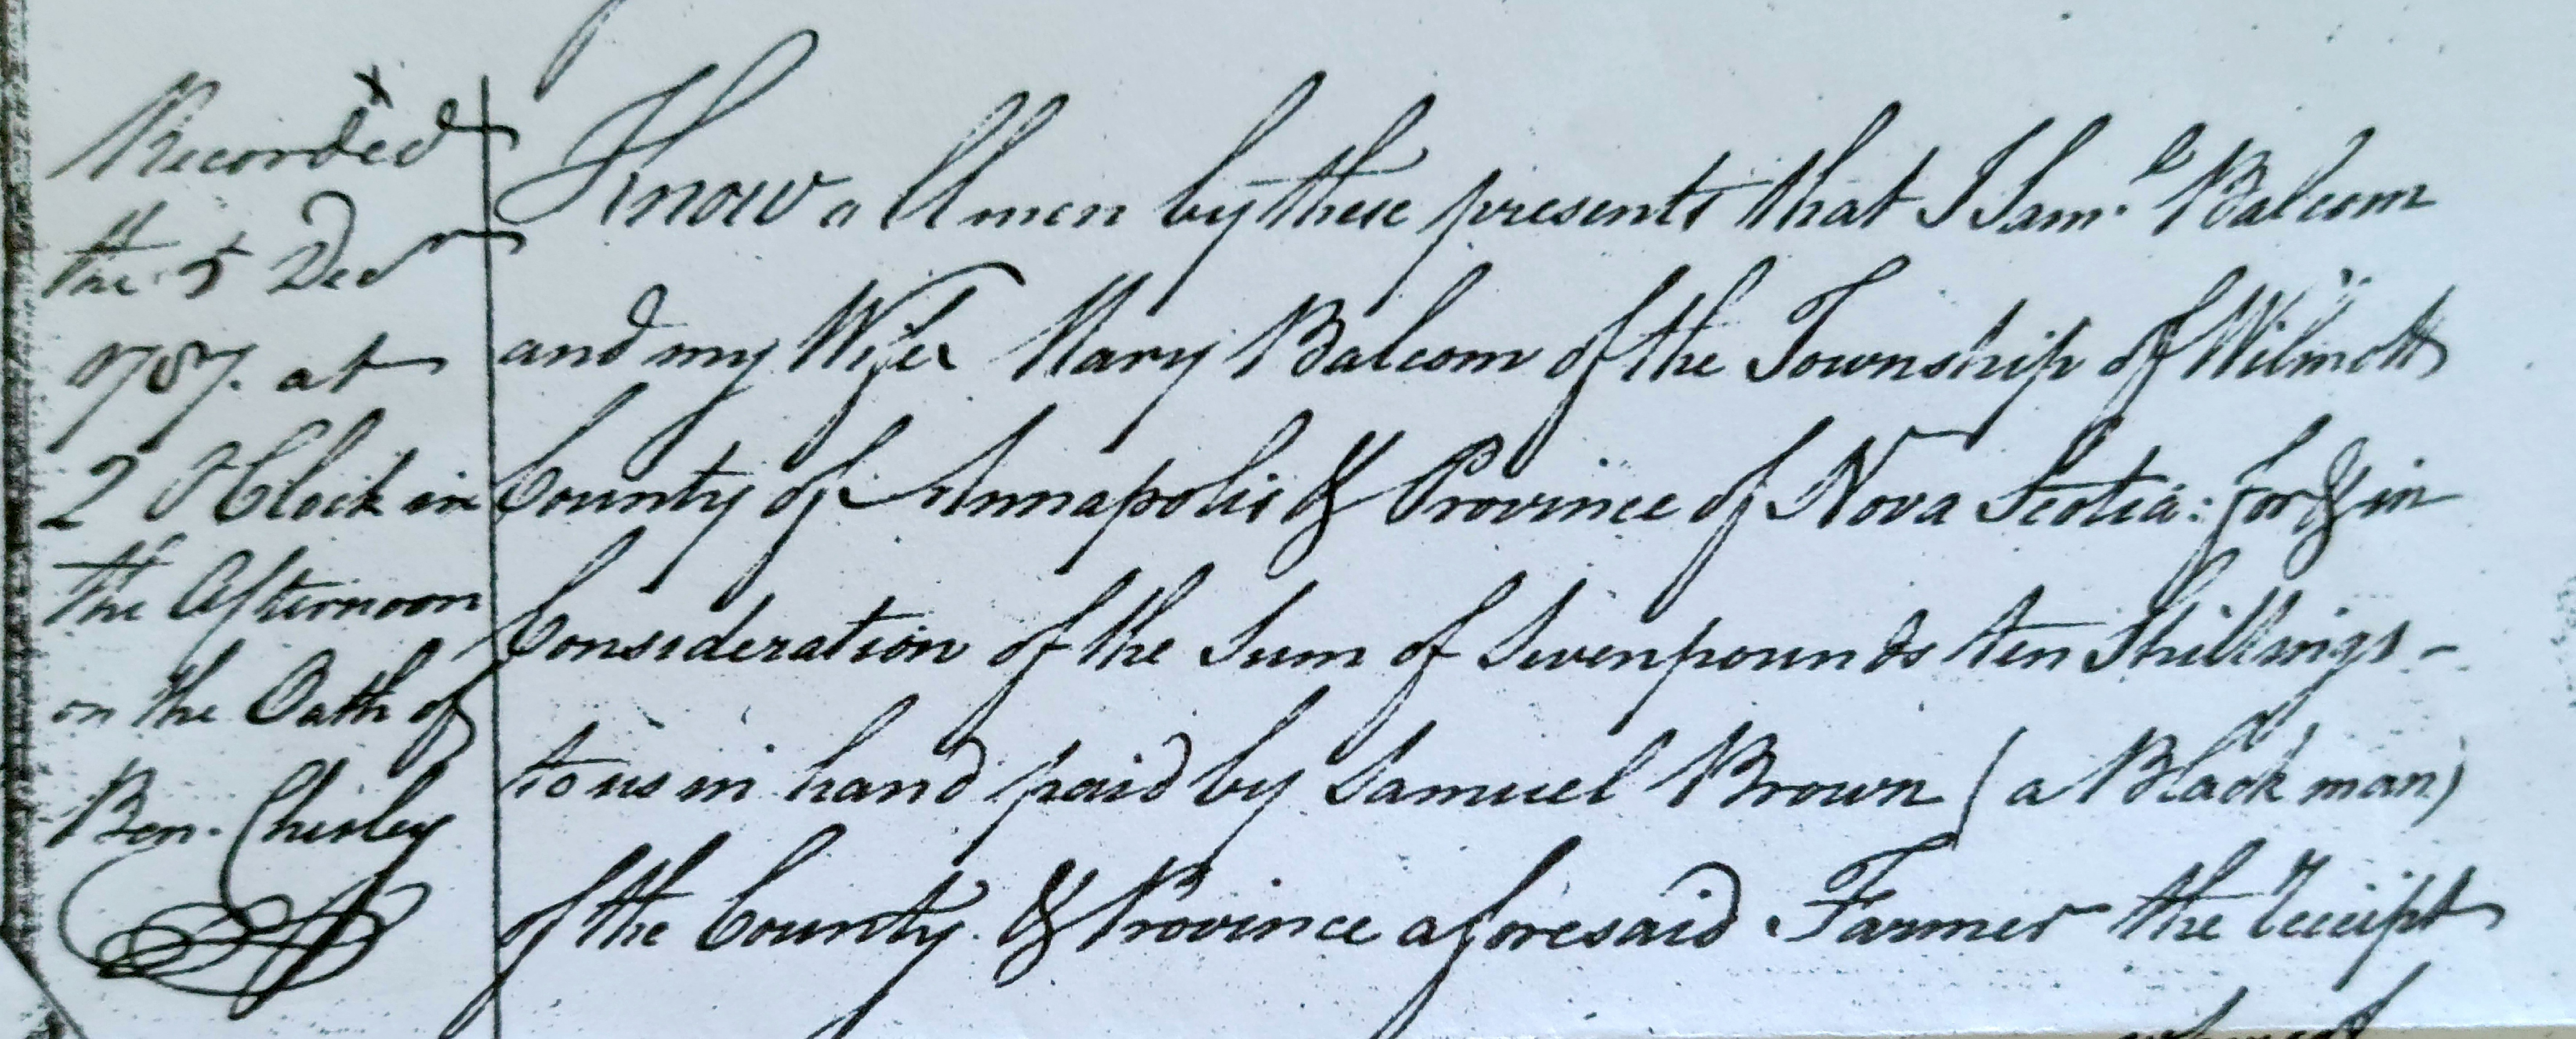 Recorded
the 5 Decr
1787. at
2 OClock in
the Afternoon
on the Oath of
Ben. Chisley
Know all men by these presents that I Saml. Balcom
and my Wife Mary Balcom of the Township of Wilmott
County of Annapolis & Province of Nova Scotia: for & in
Consideration of the Sum of Seven pounds ten Shillings -
to us in hand paid by Samuel Brown (a Black man)
of the County. & Province aforesaid Farmer the receipt